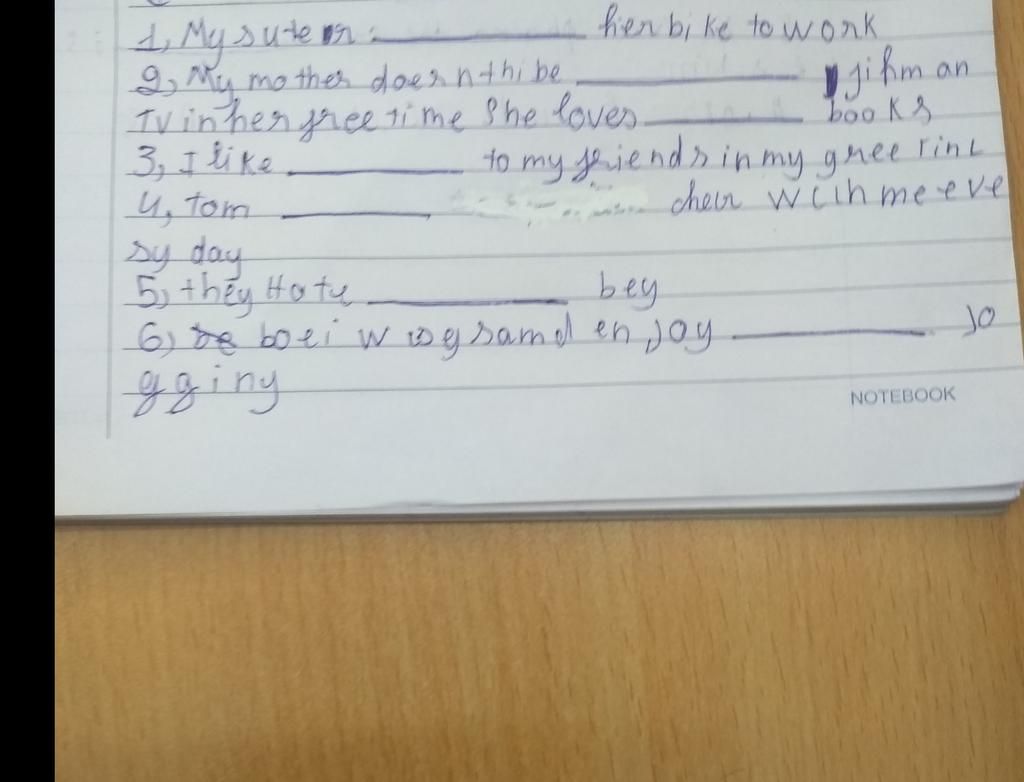 1, My suter. ______ her bike to work
2, My mother doesnthibe ______ gihm on
TV in her gree time She loves ______ books
3, I like ______ to my friends in my gree Tinc
4, Tom ______ chew with me eve
sy day
5, they Hate ______ bey
6) boei w osgsamd enjoy ______ jo
gginy
NOTEBOOK